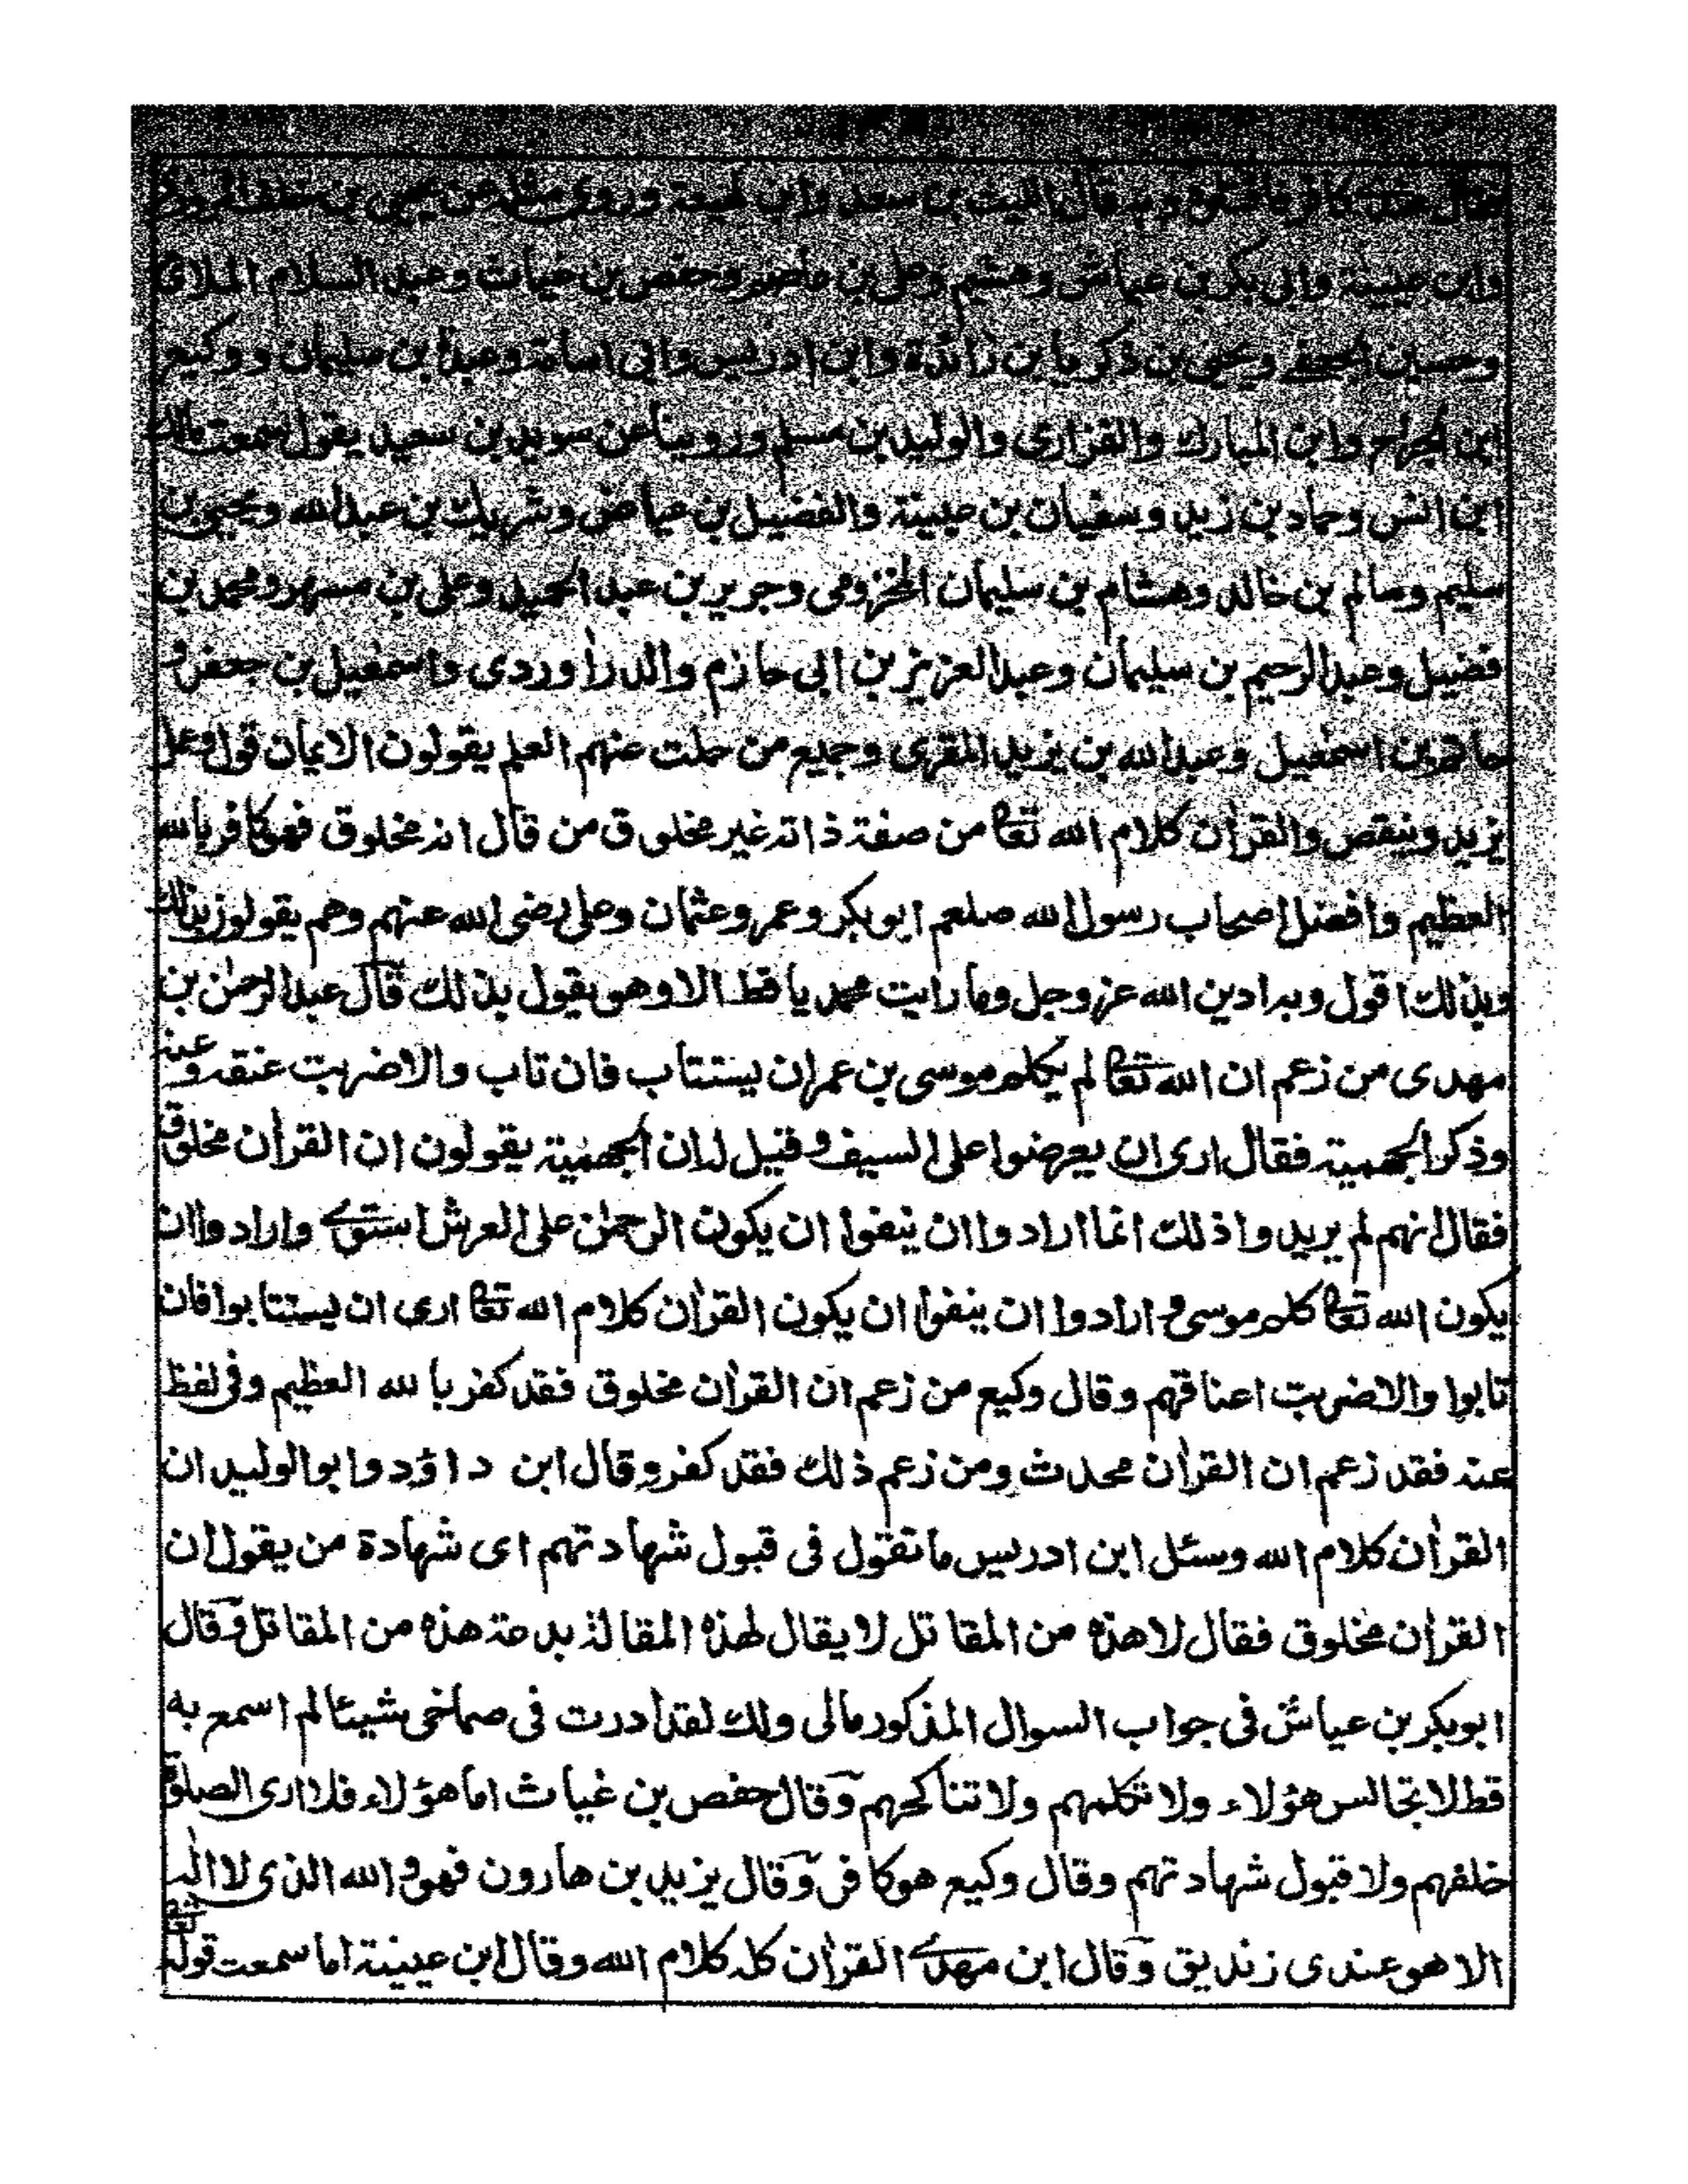 فقال هذا كافر فاقتلوه وبه قال الليث بن سعد وابن لهيعة وروى مثله عن يحيى بن خلف
وابن عيينة وابى بكر بن عياش وهشيم وعلى بن عاصم وحفص بن غياث وعبد السلام الملائى
وحسين الجعفے ويحيى بن ذكريا بن زائدة وابن ادريس وابى اسامة وعبدة بن سليمان ووكيع
ابن الجراح وابن المبارك والفزارى والوليد بن مسلم وروينا عن سويد بن سعيد يقول سمعت مالك
ابن انس وحماد بن زيد وسفيان بن عيينة والفضيل بن عياض وشريك بن عبد الله ويحيى بن
سليم ومسالم بن خالد وهشام بن سليمان المخزومى وجرير بن عبد الحميد وعلى بن مسهر ومحمد بن
فضيل وعبد الرحيم بن سليمان وعبد العزيز بن ابى حازم والدراوردى واسمعيل بن جعفر و
حاتم بن اسمعيل وعبد الله بن يزيد المقرى وجميع من حملت عنهم العلم يقولون الايمان قول وعمل
يزيد وينقص والقرأن كلام الله تعا من صفة ذاته غير مخلوق من قال انه مخلوق فهو كافر بالله
العظيم وافضل اصحاب رسول الله صلعم ابو بكر وعمر وعثمان وعلى رضى الله عنهم وهم يقولون بذلك
وبذلك اقول وبه ادين الله عز وجل وما رايت محمديا قط الا وهو يقول بذلك قال عبد الرحمٰن بن
مهدى من زعم ان الله تعا لم يكلم موسى بن عمران يستتاب فان تاب والا ضربت عنقه وعنه
وذكر الجهمية فقال ارى ان يعرضوا على السيف وقيل له ان الجهمية يقولون ان القرأن مخلوق
فقال انهم لم يريدوا ذلك انما ارادوا ان ينفوا ان يكون الرحمٰن على العرش استوے وارادوا ان
يكون الله تعا كلم موسى وارادوا ان ينفوا ان يكون القرأن كلام الله تعا ارى ان يستتابوا فان
تابوا والا ضربت اعناقهم وقال وكيع من زعم ان القرأن مخلوق فقد كفر بالله العظيم وفى لفظ
عنه فقد زعم ان القرأن محدث ومن زعم ذلك فقد كفر وقال ابن داؤد وابو الوليد ان
القرأن كلام الله وسئل ابن ادريس ما تقول فى قبول شهادتهم اى شهادة من يقول ان
القرأن مخلوق فقال لا هذه من المقاتل لا يقال لهذه المقالة بدعة هذه من المقاتل وقال
ابو بكر بن عياش فى جواب السوال المذكور مالى ولك لقد ادرت فى صماخى شيئا لم اسمع به
قط لا تجالس هؤلاء ولا تكلمهم ولا تناكحهم وقال حفص بن غياث اما هؤلاء فلا ارى الصلوة
خلفهم ولا قبول شهادتهم وقال وكيع هو كافر وقال يزيد بن هارون فهو والله الذى لا اله
الا هو عندى زنديق وقال ابن مهدے القرأن كله كلام الله وقال ابن عيينة اما سمعت قوله تعا